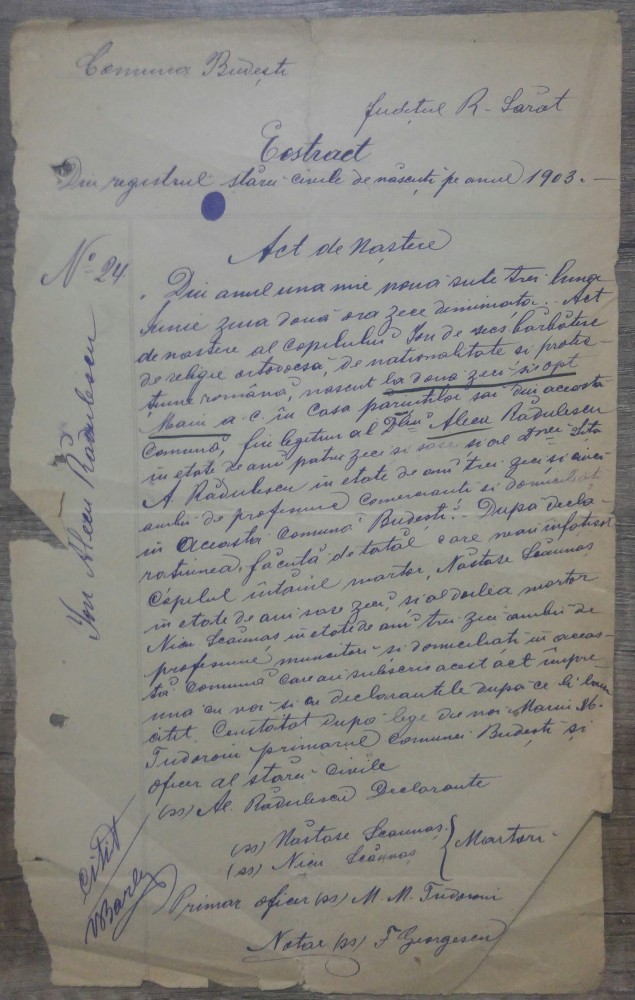 Comuna Budești
Județul R-Sărat
Eostract
Din registrul stărei civile de născuți pe anul 1903.-
No 24
Ion Alecu Rădulescu
Act de Naștere
Din anul una mie nouă sute trei luna
Iunie ziua două ora zece diminiața. Act
de nastere al copilului Ion de secs bărbătesc
de religie ortodocsă, de nationalitate si protis-
tune română, nascut la două zeci si opt
Maiu a.c. în casa parintilor săi din aceasta
comună, fiu legitim al Dlui Alecu Rădulescu
in etate de ani patru zeci si sase si al Dnei
A. Rădulescu in etate de ani trei zeci si cinci
ambii de profesiune comercianti si domiciliati
in aceasta comună Budesti. După decla-
ratiunea făcută de tatăl care mau infatisat
Copilul întâiul martor, Năstase Scăunaș
in etate de ani sase zeci, si al doilea martor
Nicu Scăunaș in etate de ani trei zeci ambii de
profesiune muncitori si domiciliati in aceas-
tă comună care au subscris acest act împre-
una cu noi si cu declarantele după ce li sau
citit. Constatat dupa lege de noi Marin M.
Tudoroiu primarul comunei Budești și
oficer al stărei civile
(ss) Al. Rădulescu Declarante
(ss) Năstase Scaunaș
(ss) Nicu Scăunaș } Martori-
Citit
Primar oficer (ss) M. M. Tudoroiu
Notar (ss) F Georgescu